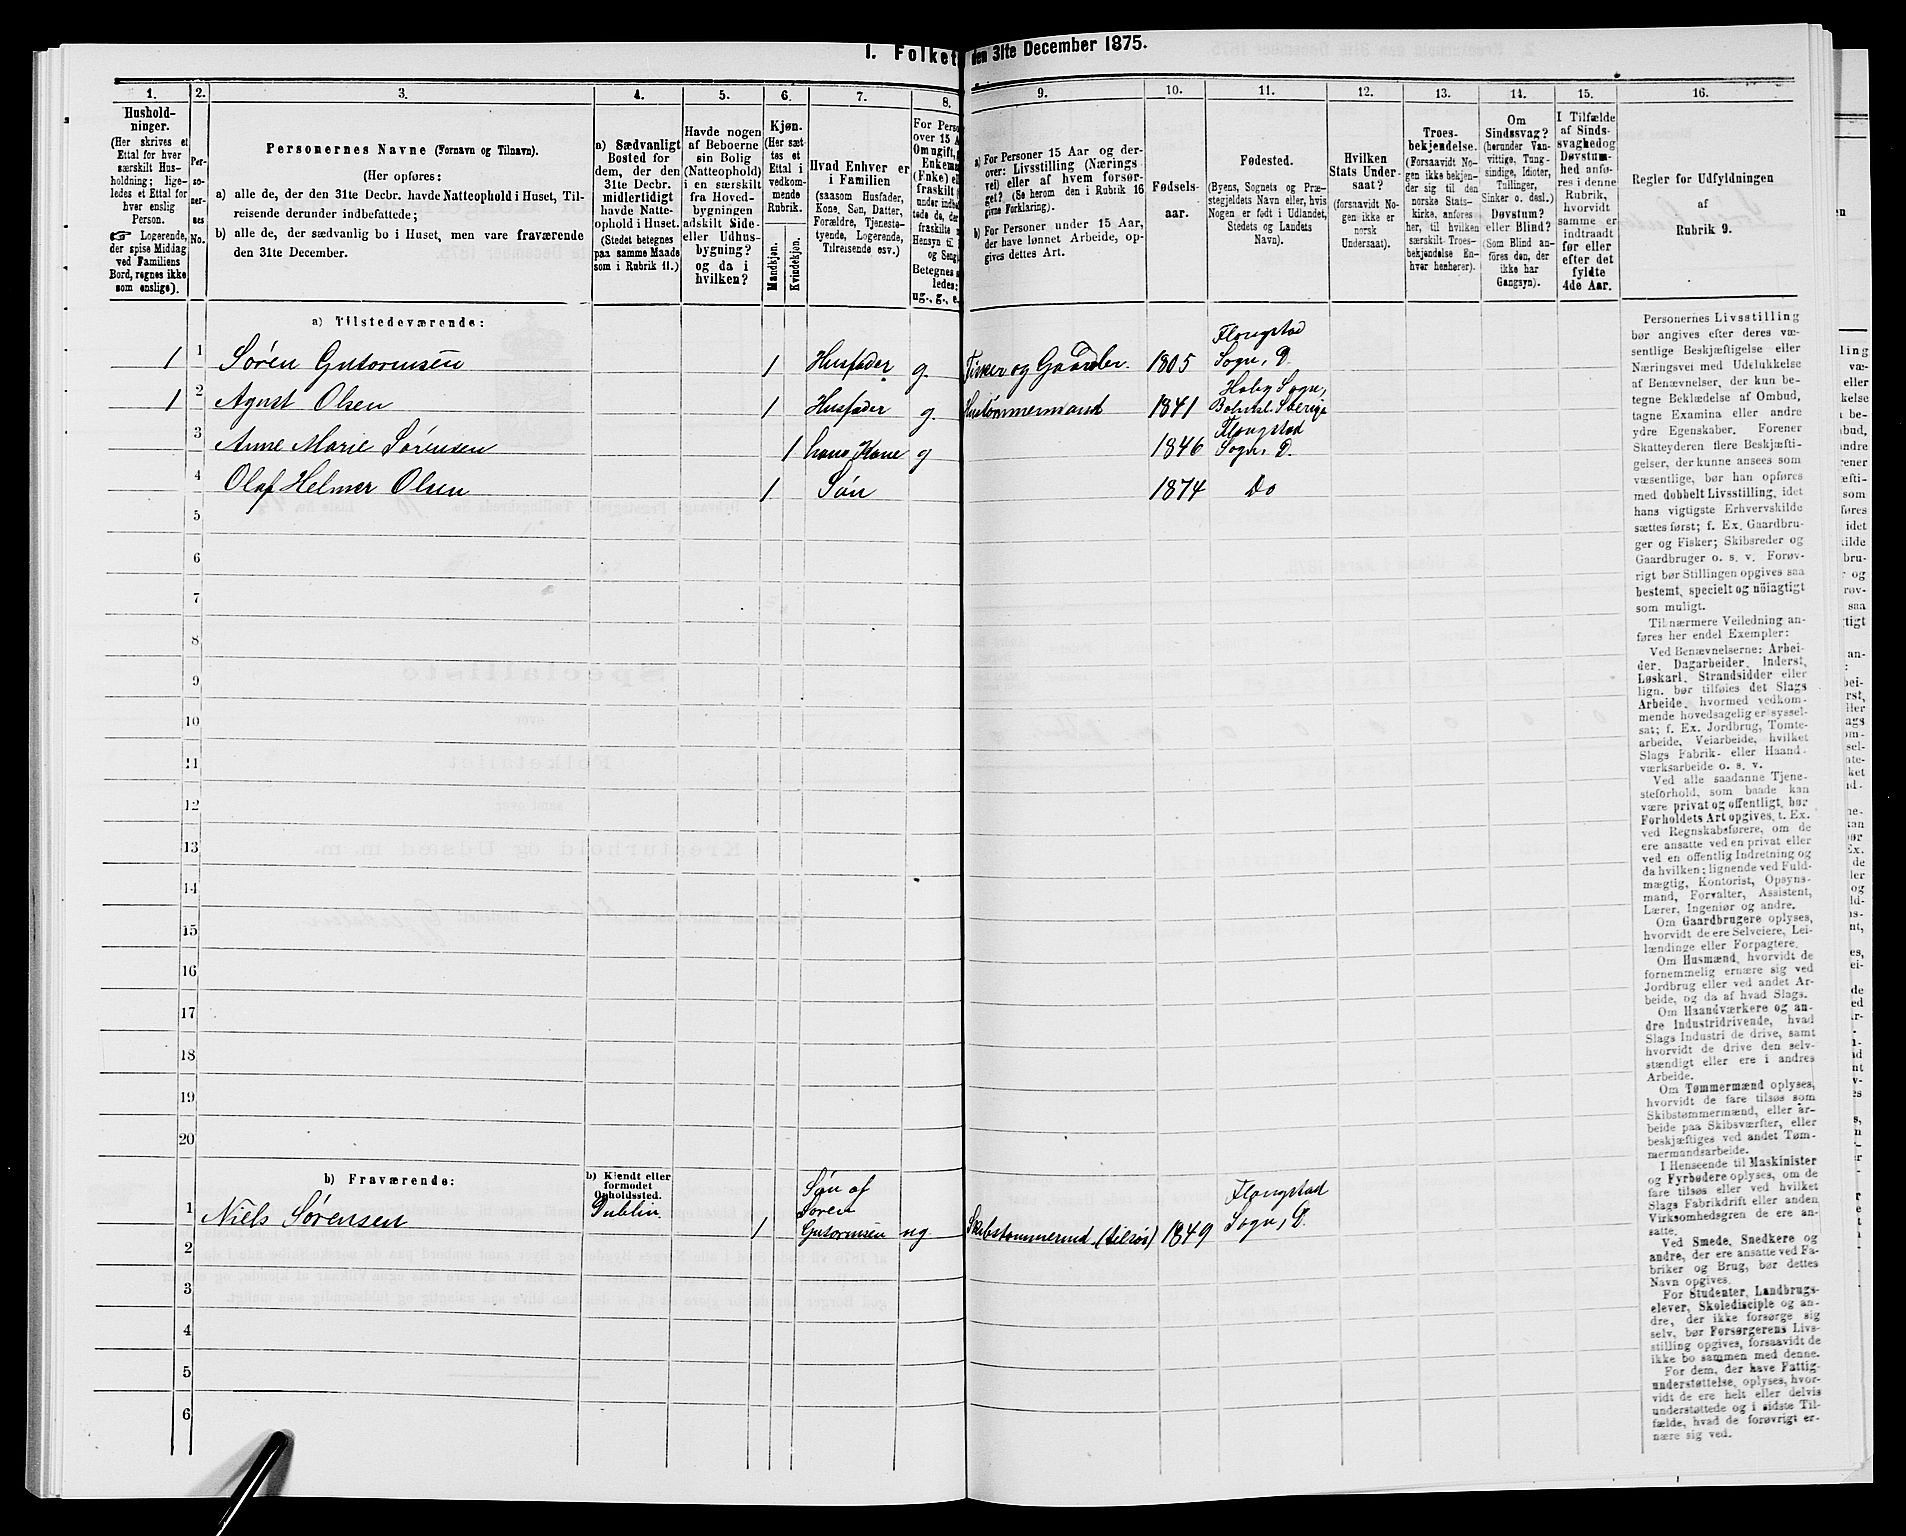 1. Folket den 31te December 1875.
1. 2. 3. 4. 5. 6. 7. 8. 9. 10. 11. 12. 13. 14. 15. 16.
Hushold-
ninger.
(Her skrives et
Ettal for hver
særskilt Hus-
holdning; lige-
ledes et Ettal for
hver enslig
Person.
☞ Logerende,
der spise Middag
ved Familiens
Bord, regnes ikke
som enslige).
Per-
so-
ner-
nes
No.
Personernes Navne (Fornavn og Tilnavn).
(Her opføres:
a) alle de, der den 31te Decbr. havde Natteophold i Huset, Til-
reisende derunder indbefattede;
b) alle de, der sædvanlig bo i Huset, men vare fraværende
den 31te December.
a) Sædvanligt
Bosted for
dem, der den
31te Decbr.
midlertidigt
havde Natte-
ophold i Huset.
(Stedet betegnes
paa samme Maade
som i Rubrik 11.)
Havde nogen
af Beboerne
sin Bolig
(Natteophold)
i en særskilt
fra Hoved-
bygningen
adskilt Side-
eller Udhus-
bygning?
og da i
hvilken?
Kjøn.
(Her sæt-
tes et
Ettal i
vedkom-
mende
Rubrik.
Mandkjøn.
Kvindekjøn.
Hvad Enhver er
i Familien
(saasom Husfader,
Kone, Søn, Datter,
Forældre, Tjeneste-
tyende, Logerende,
Tilreisende osv.)
For Perso
over 15 A
Om ugift, g
Enkem
(Enke) e
fraskilt
under indb
tede de, de
fraskilte
Hensyn til
og Seng
Betegnes s
ledes:
ug., g., e.
a) For Personer 15 Aar og der-
over: Livsstilling (Nærings
vei) eller af hvem forsør-
get? (Se herom den i Rubrik 16
givne Forklaring).
b) For Personer under 15 Aar,
der have lønnet Arbeide, op-
gives dettes Art.
Fødsels-
aar.
Fødested.
(Byens, Sognets og Præ-
stegjeldets Navn eller, hvis
Nogen er født i Udlandet,
Stedets og Landets
Navn).
Hvilken
Stats Under-
saat?
(forsaavidt No-
gen ikke er
norsk
Undersaat).
Troes-
bekjendelse.
(Forsaavidt No-
gen ikke bekjen-
der sig til den
norske Stats-
kirke, anføres
her, til hvilken
særskilt Troes-
bekjendelse En-
hver henhører).
Om
Sindssvag?
(herunder Van-
vittige, Tung-
sindige, Idioter,
Tullinger,
Sinker o. desl.)
Døvstum?
eller Blind?
(Som Blind an-
føres den, der
ikke har
Gangsyn).
I Tilfælde
af Sinds-
svaghed og
Døvstum-
hed anfø-
res i denne
Rubrik,
hvorvidt
samme er
indtraadt
før eller
efter det
fyldte
4de Aar.
Regler for Udfyldningen
af
Rubrik 9.
a) Tilstedeværende:
1 1 Søren Gutormsen 1 Husfader g. Fisker og Gaardbr. 1805 Flougstad Sogn, D.
1 2 Agust Olsen 1 Husfader g. Hustømmermand 1841 Haby Sogn, Bohusl. Sverige
3 Anne Marie Sørensen 1 hans Kone g 1846 Flougstad Sogn, D.
4 Olaf Helmer Olsen 1 Søn 1874 Do
5
6
7
8
9
10
11
12
13
14
15
16
17
18
19
20
b) Fraværende:
b) Kjendt eller
formodet
Opholdssted.
1 Niels Sørensen Dublin 1 Søn af Søren Gutormsen ug. Skibstømmermd. (tilsøs) 1849 Flougstad Sogn, D.
2
3
4
5
6
Personernes Livsstilling
bør angives efter deres væ-
sentlige Beskjæftigelse eller
Næringsvei med Udelukkelse
af Benævnelser, der kun be-
tegne Beklædelse af Ombud,
tagne Examina eller andre
ydre Egenskaber. Forener
Skatteyderen flere Beskjæfti-
gelser, der kunne ansees som
væsentlige, bør han opføres
med dobbelt Livsstilling, idet
hans vigtigste Erhvervskilde
sættes først; f. Ex. Gaardbru-
ger og Fisker; Skibsreder og
Gaardbruger o. s. v. Forøv-
rigt bør Stillingen opgives saa
bestemt, specielt og nöiagtigt
som muligt.
Til nærmere Veiledning an-
føres her endel Exempler:
Ved Benævnelserne: Arbei-
der, Dagarbeider, Inderst,
Løskarl, Strandsidder eller
lign. bør tilføies det Slags
Arbeide, hvormed vedkom-
mende hovedsagelig er syssel-
sat; f. Ex. Jordbrug, Tomte-
arbeide, Veiarbeide, hvilket
Slags Fabrik- eller Haand-
værksarbeide o. s. v.
Ved alle saadanne Tjene-
steforhold, som baade kan
være privat og offentligt, bør
Forholdets Art opgives, t. Ex.
ved Regnskabsførere, om de
ere ansatte ved en privat eller
ved en offentlig Indretning og
da hvilken; lignende ved Fuld-
mægtig, Kontorist, Opsyns-
mand, Forvalter, Assistent,
Lærer, Ingeniør og andre.
Om Gaardbrugere oplyses,
hvorvidt de ere Selveiere, Lei-
lændinge eller Forpagtere.
Om Husmænd, hvorvidt de
fornemmelig ernære sig ved
Jordbrug eller ved andet Ar-
beide, og da af hvad Slags.
Om Haandværkere og an-
dre Industridrivende, hvad
Slags Industri de drive, samt
hvorvidt de drive den selv-
stændigt eller ere i andres
Arbeide.
Om Tømmermænd oplyses,
hvorvidt de fare tilsøs som
Skibstømmermænd, eller ar-
beide paa Skibsværfter, eller
beskjæftiges ved andet Tøm-
mermandsarbeide.
I Henseende til Maskinister
og Fyrbødere oplyses, om de
fare tilsøs eller ved hvilket
Slags Fabrikdrift eller anden
Virksomhedsgren de ere an-
satte.
Ved Smede, Snedkere og
andre, der ere ansatte ved Fa-
briker og Brug, bør dettes
Navn opgives.
For Studenter, Landbrugs-
elever, Skoledisciple og an-
dre, der ikke forsørge sig
selv, bør Forsørgerens Livs-
stilling opgives, forsaavidt de
ikke bo sammen med denne.
For dem, der have Fattig-
understøttelse, oplyses, hvor-
vidt de ere helt eller delvis
understøttede og i sidste Til-
fælde, hvad de forøvrigt er-
nære sig ved.